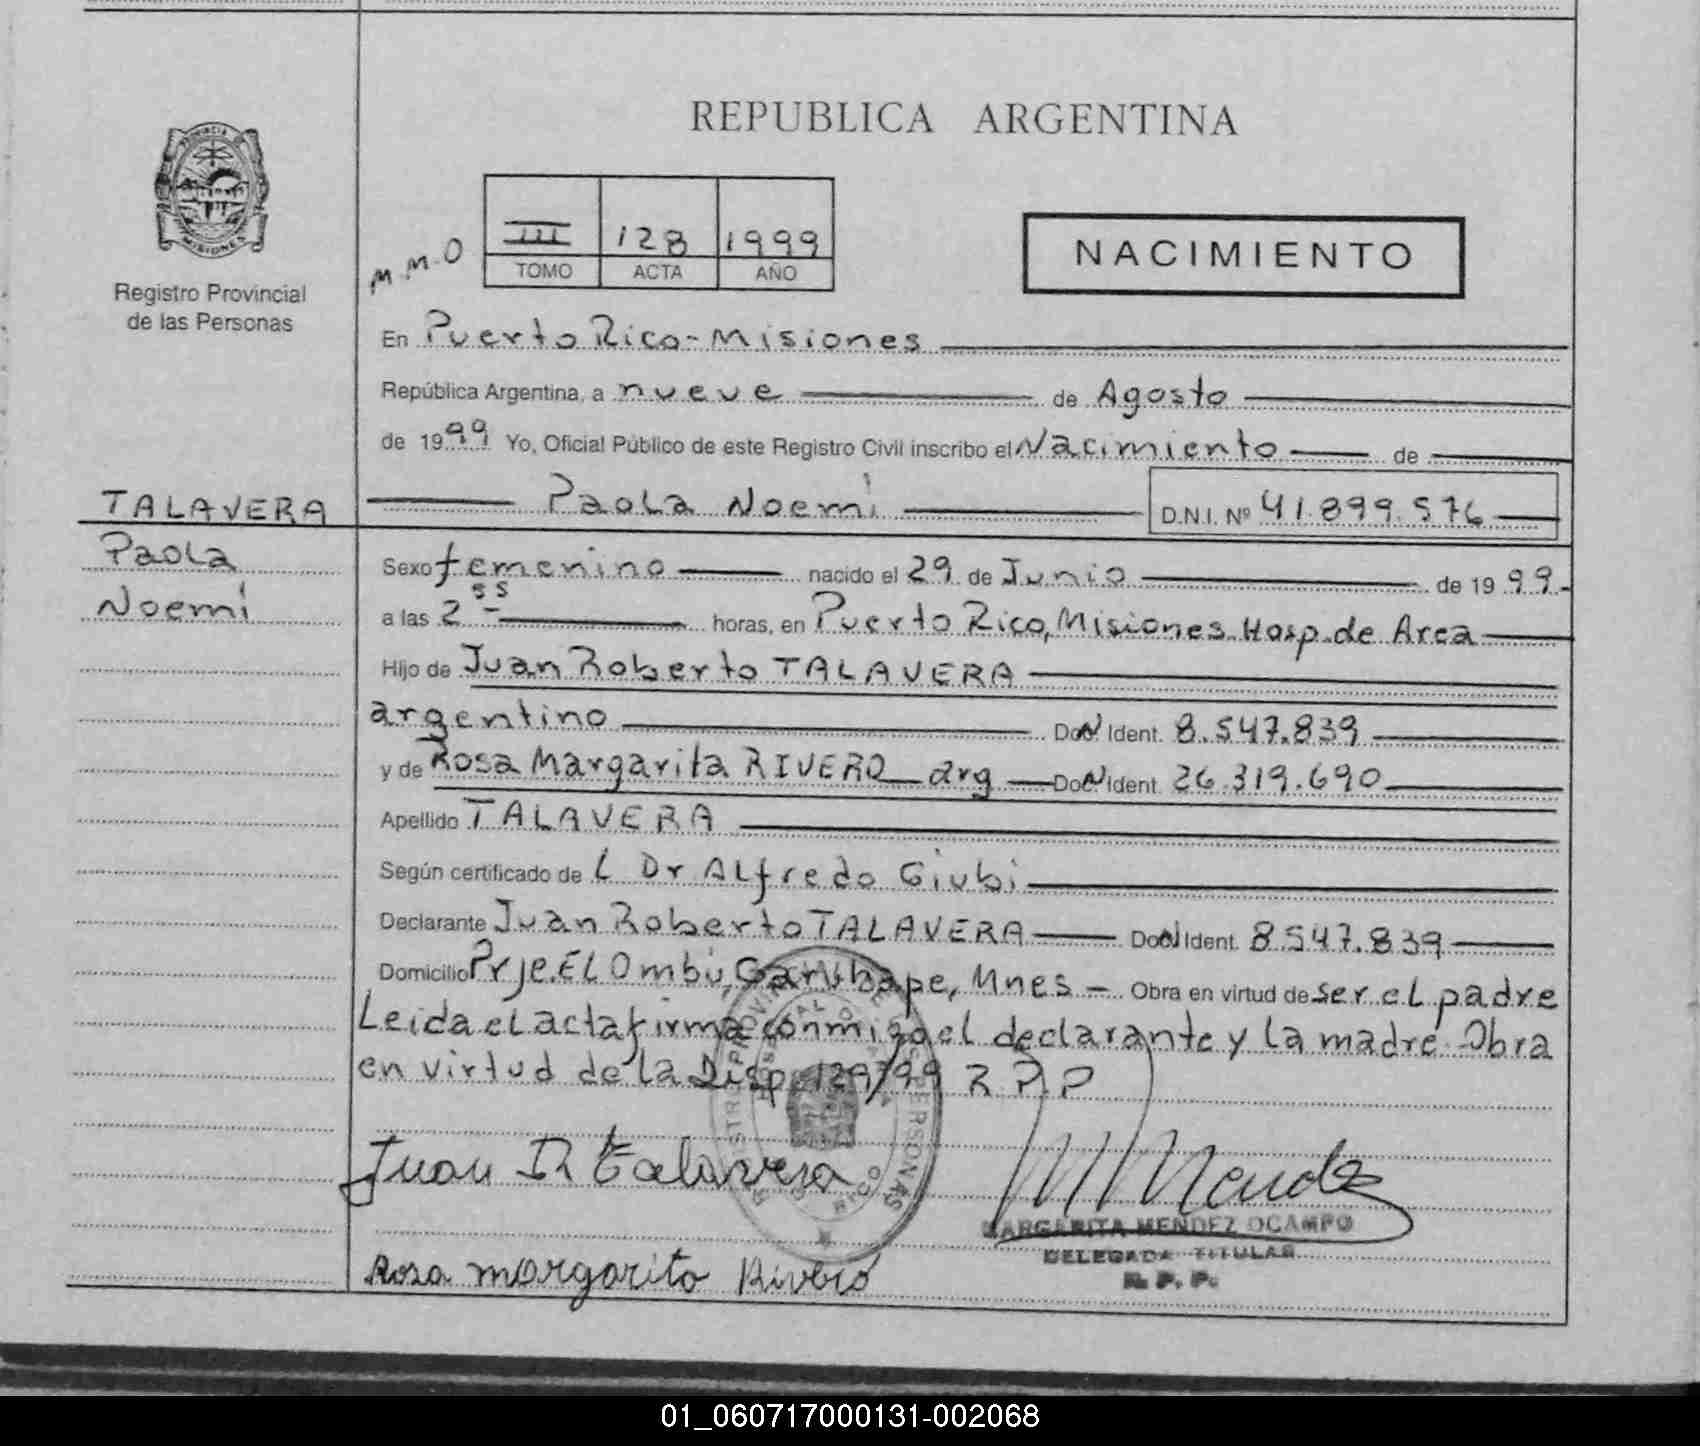 REPUBLICA ARGENTINA
PROVINCIA DE
MISIONES
Registro Provincial
de las Personas
M.M.O
III 128 1999
TOMO ACTA AÑO
NACIMIENTO
En Puerto Rico-Misiones
República Argentina, a nueve de Agosto
de 1999 Yo, Oficial Público de este Registro Civil inscribo el Nacimiento de
TALAVERA
Paola Noemi
D.N.I. Nº 41.899.576
Paola
Noemi
Sexo femenino nacido el 29 de Junio de 1999.-
a las 2 55 horas, en Puerto Rico, Misiones Hosp. de Area
Hijo de Juan Roberto TALAVERA
argentino Doc. Ident. 8.547.839
y de Rosa Margarita RIVERO arg Doc. Ident. 26.319.690
Apellido TALAVERA
Según certificado de L Dr ALfredo Giubi
Declarante Juan Roberto TALAVERA Doc. Ident. 8547.839
Domicilio Prje. EL Ombú, Garuhape, Mnes - Obra en virtud de ser el padre
Leida el acta firma conmigo el declarante y la madre. Obra
en virtud de la Disp. 129/99 R.P.P
Juan R talavera
M Mendez
MARGARITA MENDEZ OCAMPO
DELEGADA TITULAR
R. P. P.
Rosa margarita Rivero
01_060717000131-002068